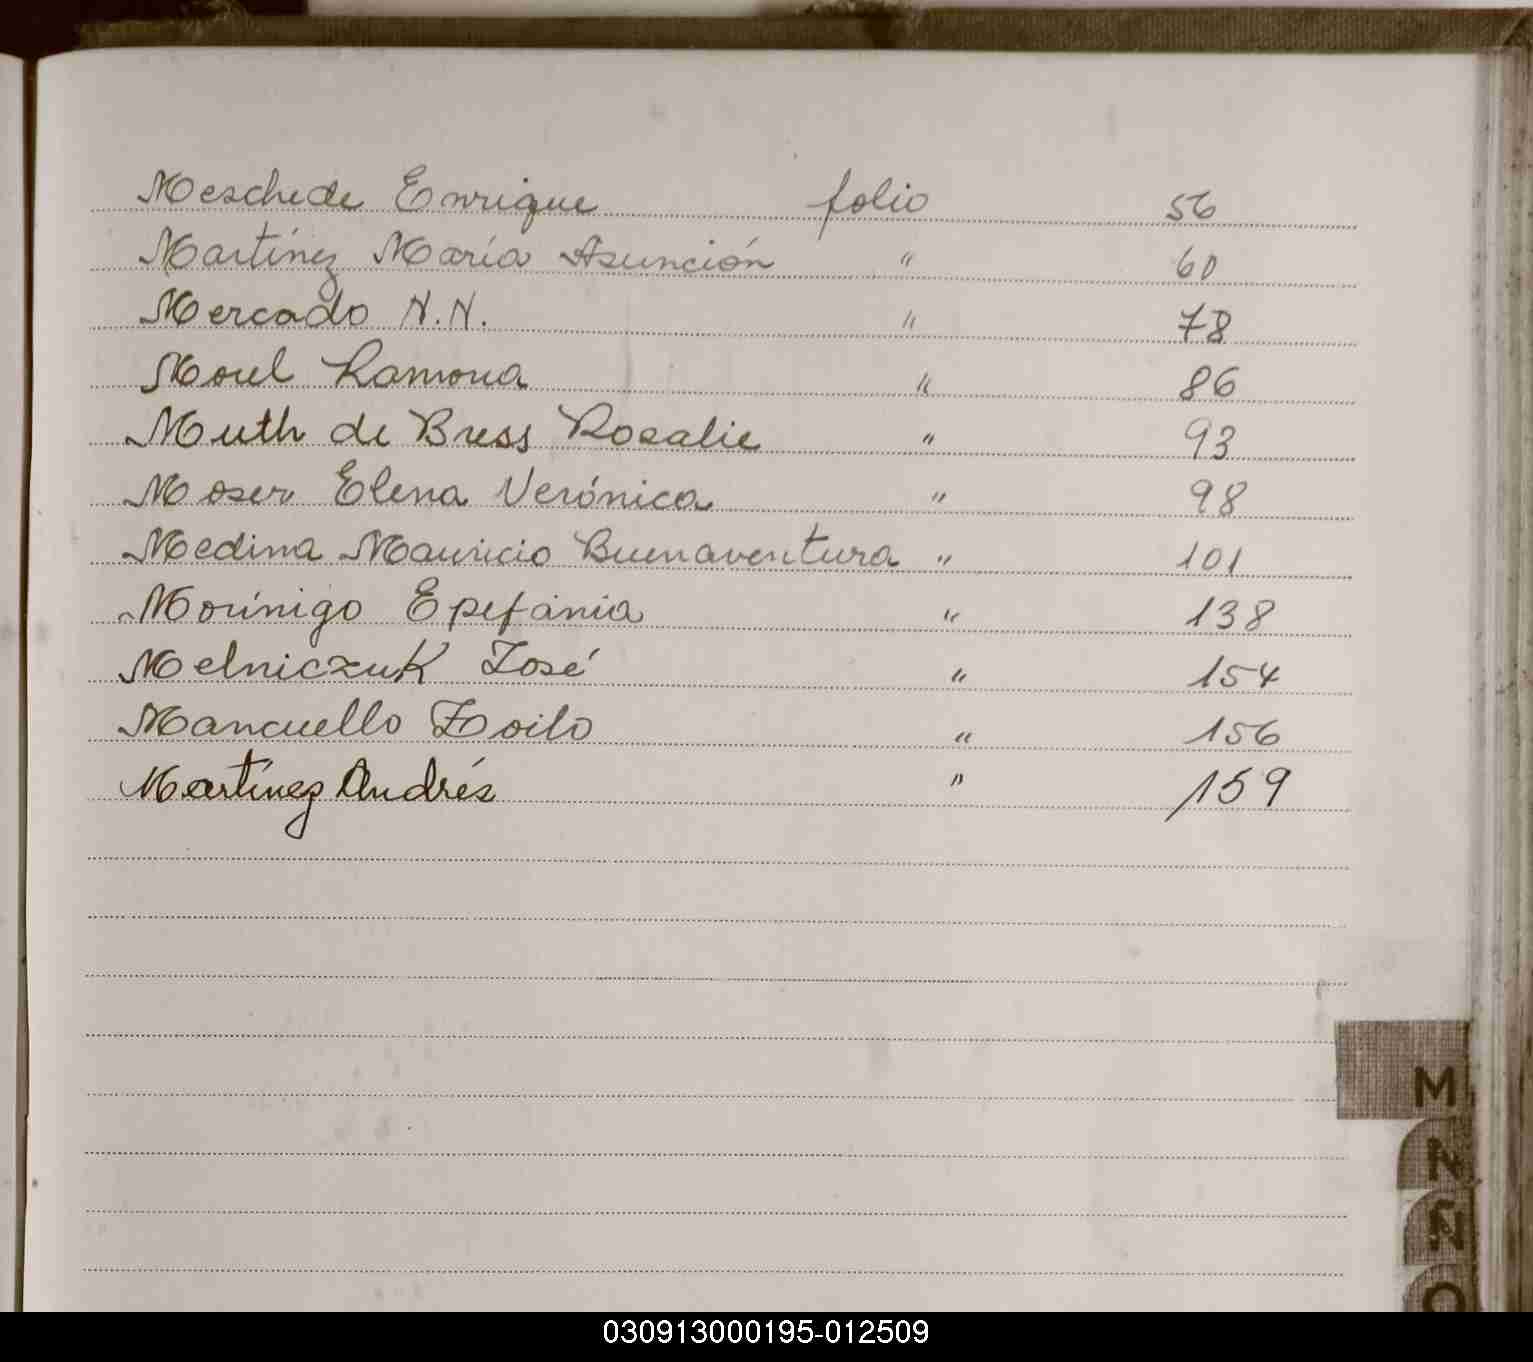 Meschede Enrique folio 56
Martínez María Asunción " 60
Mercado N.N. " 78
Morel Ramona " 86
Muth de Bress Rosalie " 93
Moser Elena Verónica " 98
Medina Mauricio Buenaventura " 101
Morínigo Epefania " 138
Melniczuk José " 154
Mancuello Zoilo " 156
Martínez Andrés " 159
M
N
Ñ
O
030913000195-012509